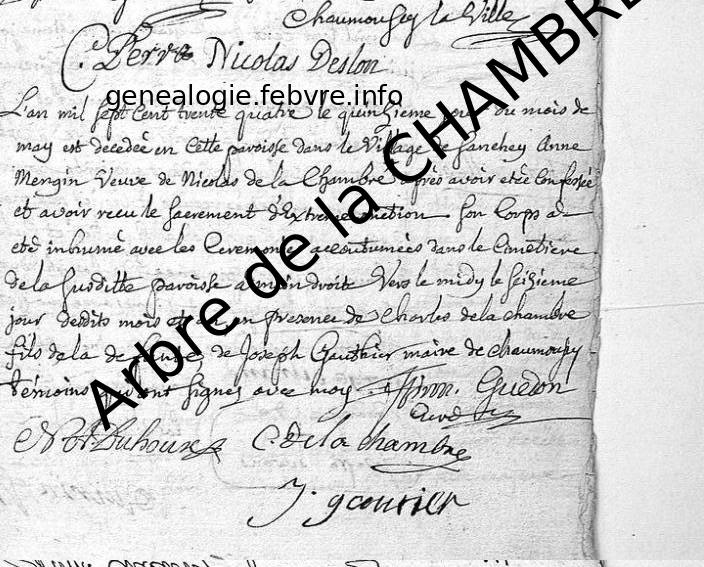 Chaumousey la Ville
C. Perva Nicolas Deslon
genealogie.febvre.info
L'an mil sept Cent trente quatre le quinzieme jour du mois de
may est decedée en Cette paroisse dans le Village de Sanchey Anne
Mengin Veuve de Nicolas de la Chambre après avoir eteé Confessée
et avoir recu le sacrement d'Extreme onction son Corps a
eté inhumé avec les Ceremonies accoutumées dans le Cimetiere
de la susditte paroisse a main droite Vers le midy le seizieme
jour desdits mois et an en presence de Charles de la chambre
fils de la de de Joseph Gauthier maire de chaumousey
témoins signes avec moy. Guedon
Curé
C. de la chambre
J. gcourier
Arbre de la CHAMBRE